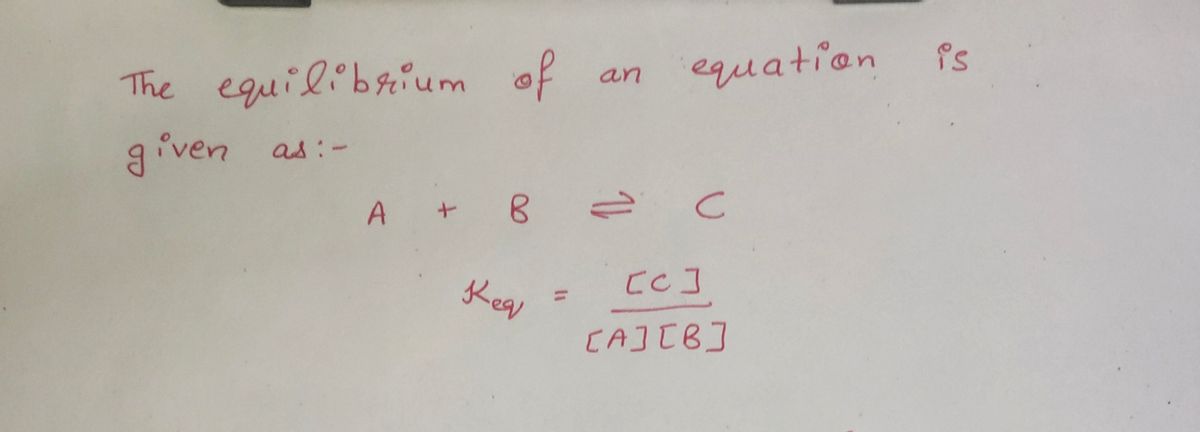 The equilibrium of an equation is
given as:-
A + B ⇌ C
Keq = [C]
[A][B]